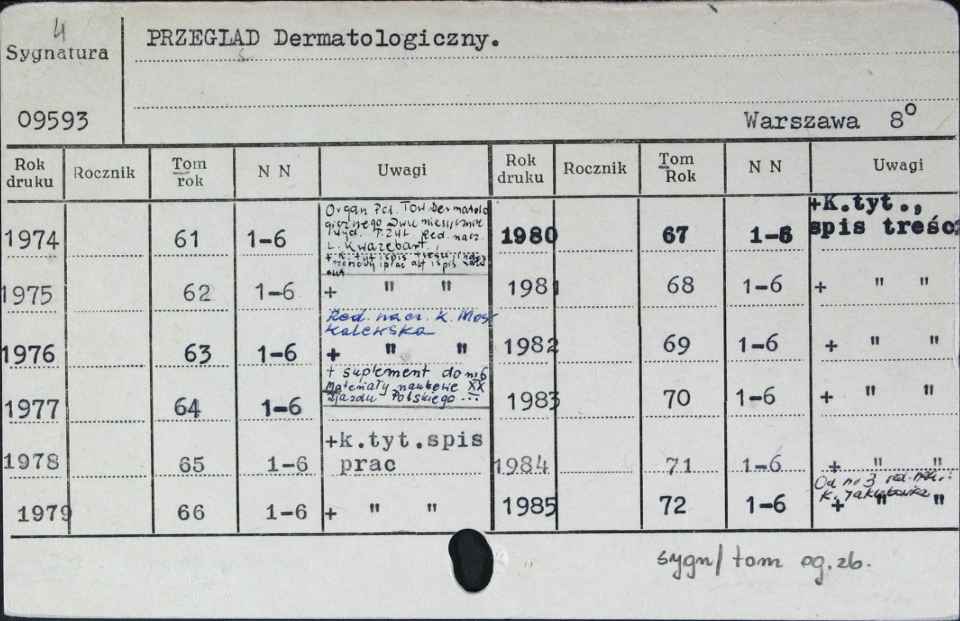 4
Sygnatura
09593
PRZEGLAD Dermatologiczny.
Warszawa 8°
Rok druku Rocznik Tom rok N N Uwagi
1974 61 1-6 Organ Pol. Tow. Dermatolo
gicznego Dwumiesięcznik
Wyd. PZWL Red. nacz.
L. Kwarebart,
+ K. tyt i spis treści
1975 62 1-6 + " "
Red. nacz. K. Mos
kalewska
1976 63 1-6 + " "
+ suplement do nr 6
Materiały naukowe XX
Zjazdu Polskiego ...
1977 64 1-6
1978 65 1-6 +k.tyt.spis
prac
1979 66 1-6 + " "
Rok druku Rocznik Tom Rok N N Uwagi
1980 67 1-6 +K.tyt.,
spis treśc
1981 68 1-6 + " "
1982 69 1-6 + " "
1983 70 1-6 + " "
1984 71 1-6 + " "
Od nr 3 red.
K.
1985 72 1-6 + " "
sygn/tom og.zb.